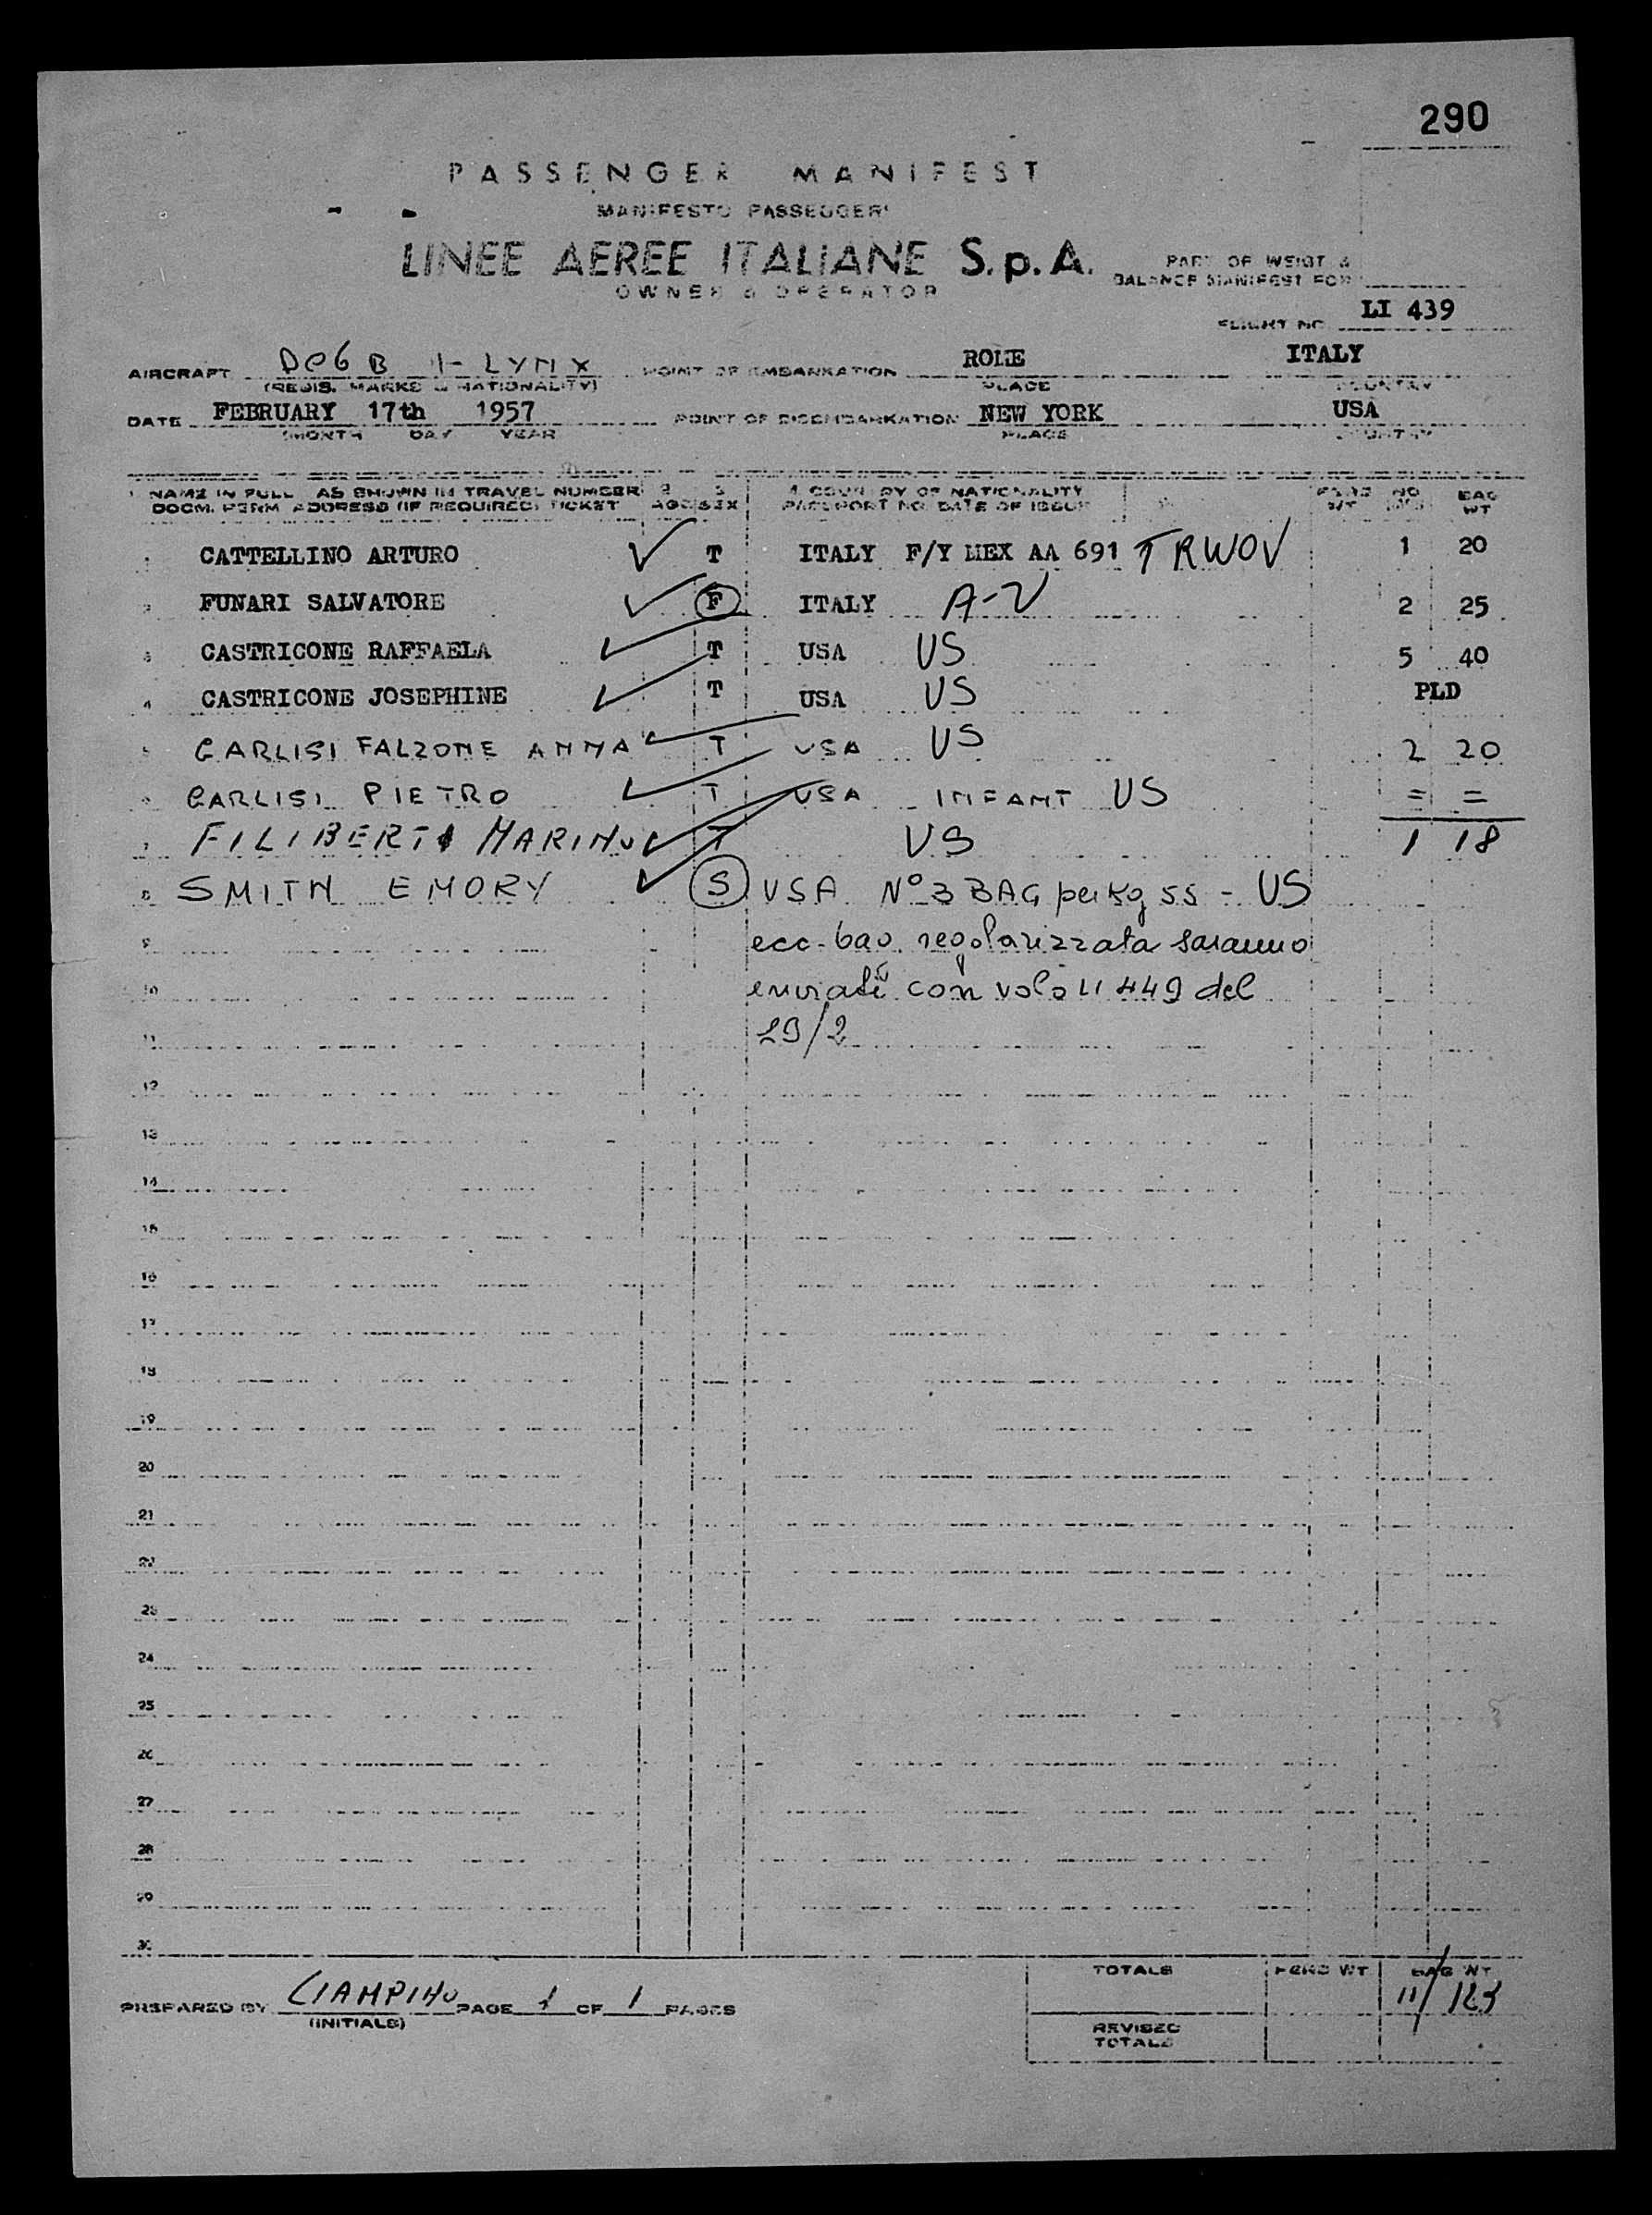 290
PASSENGER MANIFEST
MANIFESTO PASSEGGERI
LINEE AEREE ITALIANE S.p.A.
OWNER & OPERATOR
PART OF WEIGT &
BALANCE MANIFEST FOR
FLIGHT NO LI 439
AIRCRAFT DC6B I-LYNX POINT OF EMBARKATION ROME ITALY
(REGIS. MARKS & NATIONALITY) PLACE COUNTRY
DATE FEBRUARY 17th 1957 POINT OF DISEMBARKATION NEW YORK USA
MONTH DAY YEAR PLACE COUNTRY
1 NAME IN FULL AS SHOWN IN TRAVEL NUMBER 2 3 4 COUNTRY OF NATIONALITY NO BAG
DOCM. PERM ADDRESS (IF REQUIRED) TICKET AGE SEX PASSPORT NO. DATE OF ISSUE WT WT
1 CATTELLINO ARTURO T ITALY F/Y MEX AA 691 TRWOV 1 20
2 FUNARI SALVATORE F ITALY A-2 2 25
3 CASTRICONE RAFFAELA T USA US 5 40
4 CASTRICONE JOSEPHINE T USA US PLD
5 CARLISI FALZONE ANNA T USA US 2 20
6 CARLISI PIETRO T USA INFANT US = =
7 FILIBERTI MARINO T US 1 18
8 SMITH EMORY S USA N° 3 BAG per Kg 55 - US
9 ecc. bag regolarizzata saranno
10 inviati con volo LI 449 del
11 19/2
12
13
14
15
16
17
18
19
20
21
22
23
24
25
26
27
28
29
30
TOTALS PERS WT BAG WT
11/123
PREPARED BY CIAMPINO PAGE 1 OF 1 PAGES
(INITIALS)
REVISED
TOTALS